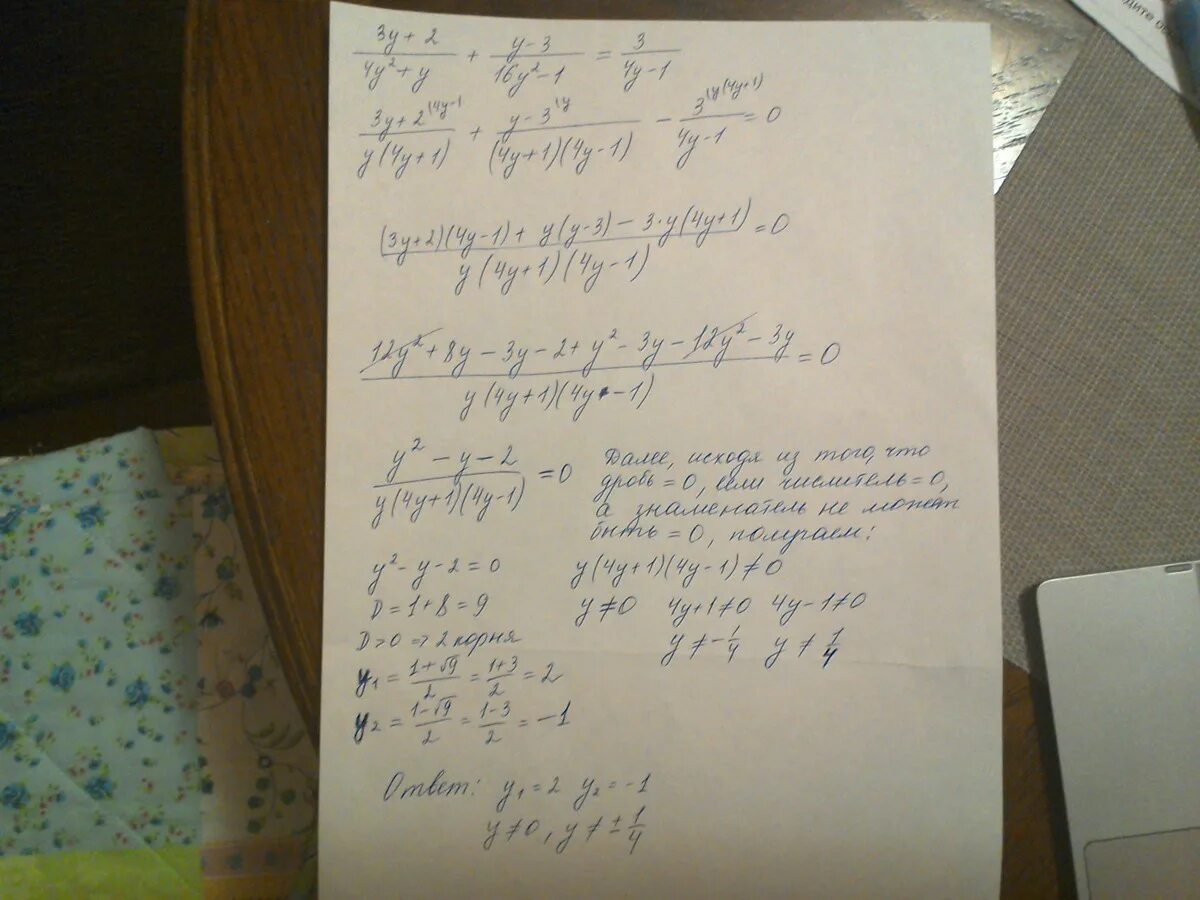 (3y+2)/(4y²+y) + (y-3)/(16y²-1) = 3/(4y-1)
(3y+2^{\4y-1})/(y(4y+1)) + (y-3^{\y})/((4y+1)(4y-1)) - (3^{\y(4y+1)})/(4y-1) = 0
((3y+2)(4y-1) + y(y-3) - 3·y(4y+1))/(y(4y+1)(4y-1)) = 0
(12y² + 8y - 3y - 2 + y² - 3y - 12y² - 3y)/(y(4y+1)(4y-1)) = 0
(y² - y - 2)/(y(4y+1)(4y-1)) = 0
Далее, исходя из того, что
дробь = 0, если числитель = 0,
а знаменатель не может
быть = 0, получаем:
y² - y - 2 = 0
D = 1 + 8 = 9
D > 0 ⇒ 2 корня
y₁ = (1+√9)/2 = (1+3)/2 = 2
y₂ = (1-√9)/2 = (1-3)/2 = -1
y(4y+1)(4y-1) ≠ 0
y ≠ 0 4y+1 ≠ 0 4y-1 ≠ 0
y ≠ -1/4 y ≠ 1/4
Ответ: y₁ = 2 y₂ = -1
y ≠ 0, y ≠ ± 1/4